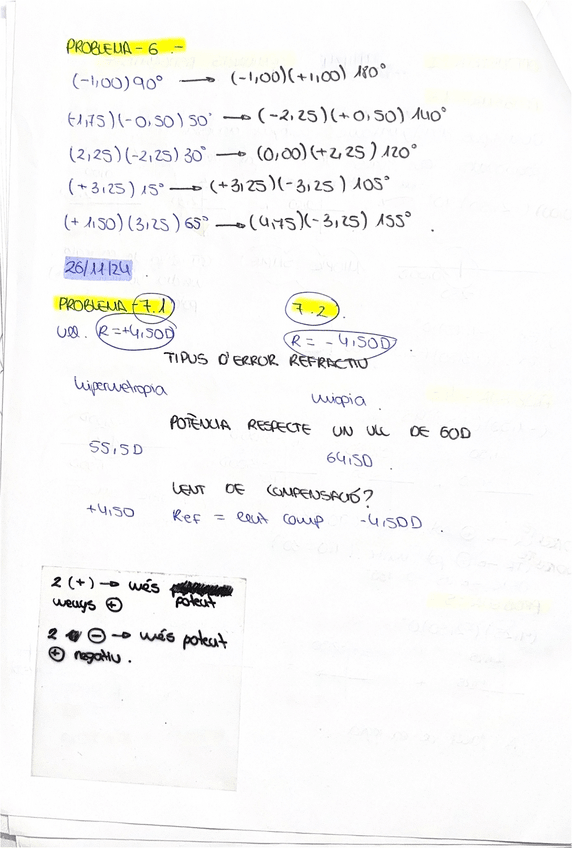 PROBLEMA - 6 .-
(-1,00) 90° → (-1,00)(+1,00) 180°
(-1,75)(-0,50) 50° → (-2,25)(+0,50) 140°
(2,25)(-2,25) 30° → (0,00)(+2,25) 120°
(+3,25) 15° → (+3,25)(-3,25) 105°
(+1,50)(3,25) 65° → (4,75)(-3,25) 155° .
26/11/24 .
PROBLEMA - 7.1 7.2 .
ull. R=+4,50D R = -4,50D
TIPUS D'ERROR REFRACTIU
hipermetropia miopia .
POTÈNCIA RESPECTE UN ULL DE 60D
55,5D 64,5D .
LENT DE COMPENSACIÓ?
+4,50 Ref = lent comp -4,50D .
2 (+) → més
menys ⊕ potent
2 ⊖ → més potent
⊕ negatiu .